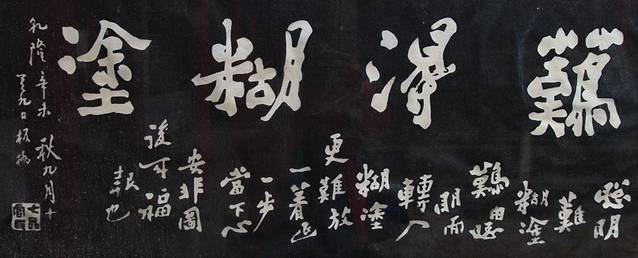 難得糊塗
聰明
難
糊塗
難由聰
明而
轉入
糊塗
更難放
一着退
一步
當下心
安非圖
後来福
報也
乾隆辛未秋九月十
有九日板橋